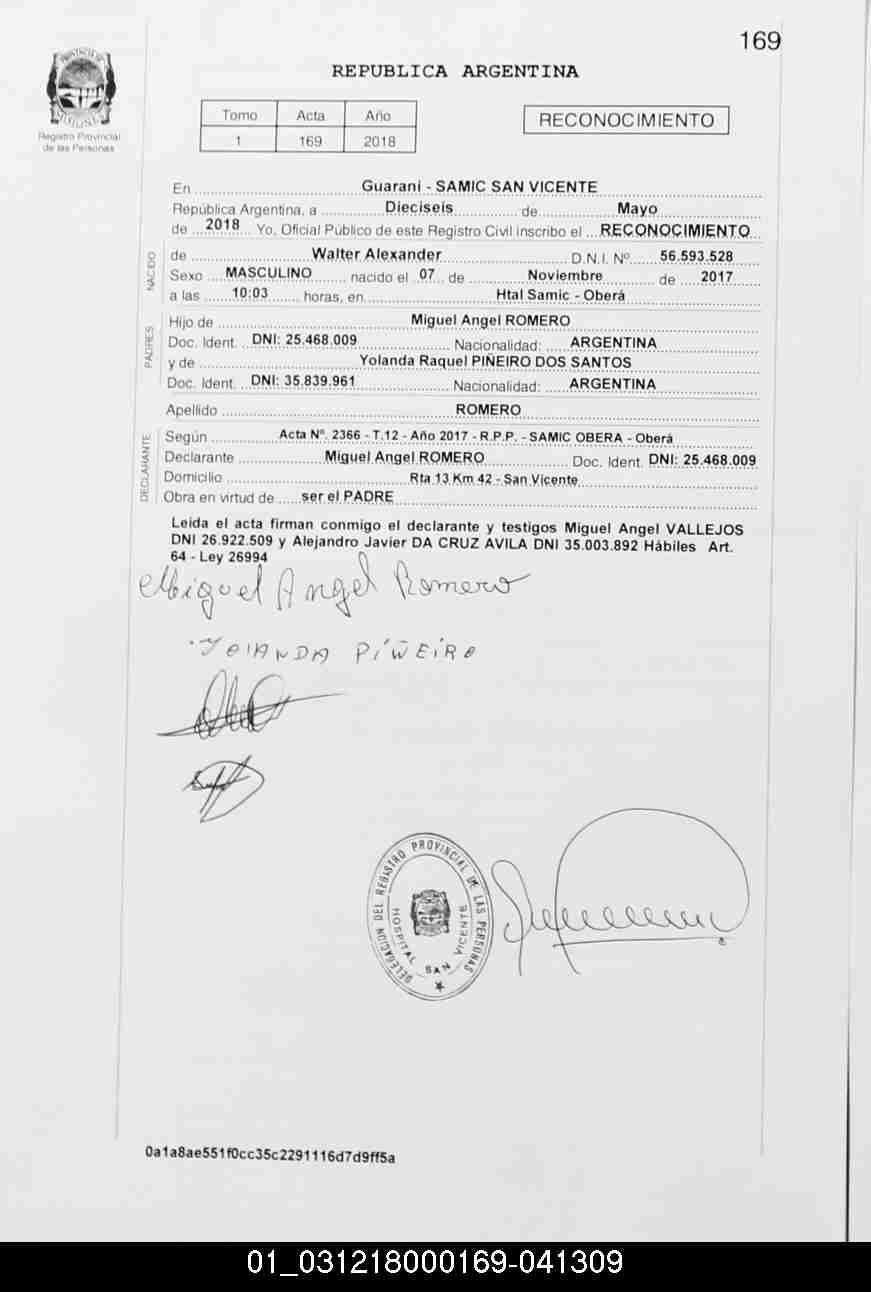 169
PROVINCIA DE
MISIONES
Registro Provincial
de las Personas
REPUBLICA ARGENTINA
Tomo Acta Año
1 169 2018
RECONOCIMIENTO
En Guarani - SAMIC SAN VICENTE
República Argentina, a Dieciseis de Mayo
de 2018 Yo, Oficial Público de este Registro Civil inscribo el RECONOCIMIENTO
NACIDO
de Walter Alexander D.N.I. Nº 56.593.528
Sexo MASCULINO nacido el 07 de Noviembre de 2017
a las 10:03 horas, en Htal Samic - Oberá
PADRES
Hijo de Miguel Angel ROMERO
Doc. Ident. DNI: 25.468.009 Nacionalidad: ARGENTINA
y de Yolanda Raquel PIÑEIRO DOS SANTOS
Doc. Ident. DNI: 35.839.961 Nacionalidad: ARGENTINA
Apellido ROMERO
DECLARANTE
Según Acta Nº. 2366 - T.12 - Año 2017 - R.P.P. - SAMIC OBERA - Oberá
Declarante Miguel Angel ROMERO Doc. Ident. DNI: 25.468.009
Domicilio Rta 13 Km 42 - San Vicente
Obra en virtud de ser el PADRE
Leida el acta firman conmigo el declarante y testigos Miguel Angel VALLEJOS
DNI 26.922.509 y Alejandro Javier DA CRUZ AVILA DNI 35.003.892 Hábiles Art.
64 - Ley 26994
Miguel Angel Romero
YOLANDA PIÑEIRO
DELEGACION DEL REGISTRO PROVINCIAL DE LAS PERSONAS
HOSPITAL SAN VICENTE
0a1a8ae551f0cc35c2291116d7d9ff5a
01_031218000169-041309